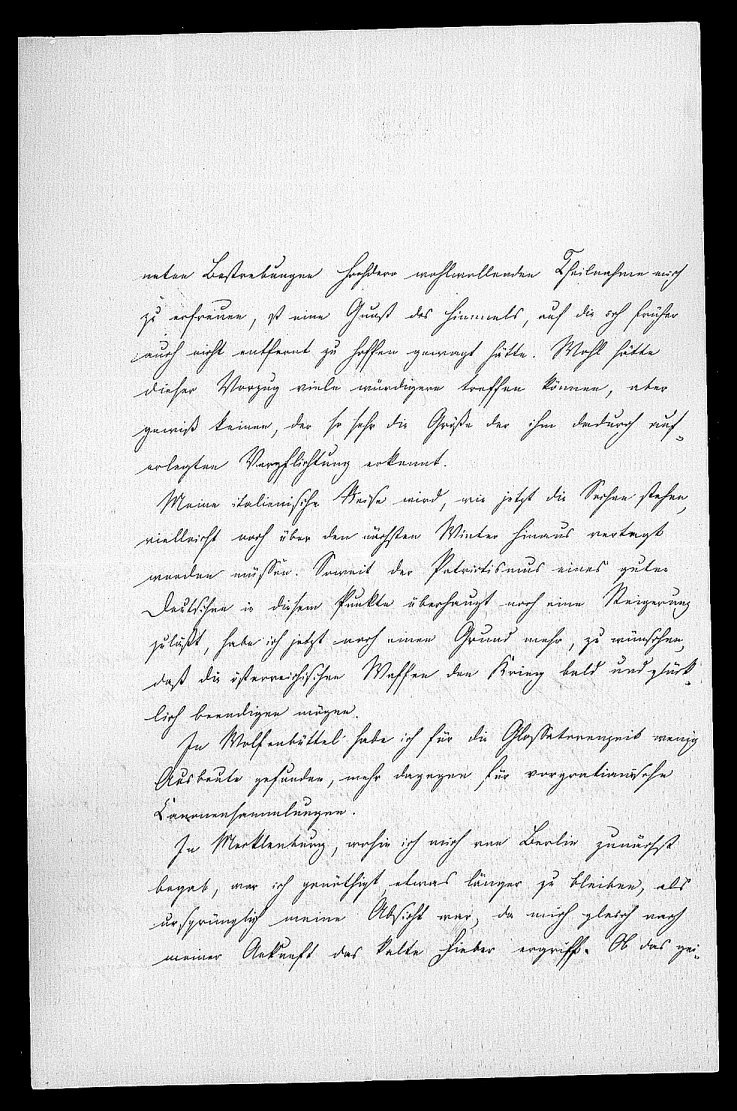 neten Bestrebungen Hochdero wohlwollenden Theilnahme mich
zu erfreuen, ist eine Gunst des Himmels, auf die ich früher
auch nicht entfernt zu hoffen gewagt hätte. Wohl hätte
dieser Vorzug viele würdigere treffen können, aber
gewiß keinen, der so sehr die Größe der ihm dadurch auf-
erlegten Verpflichtung erkennt.
Meine italienische Reise wird, wie jetzt die Sachen stehen,
vielleicht noch über den nächsten Winter hinaus vertagt
werden müssen. Soweit der Patriotismus eines guten
Deutschen in diesem Punkte überhaupt noch eine Steigerung
zuläßt, habe ich jetzt noch einen Grund mehr, zu wünschen,
daß die österreichischen Waffen den Krieg bald und glück-
lich beendigen mögen.
In Wolfenbüttel habe ich für die Glossatorenzeit wenig
Ausbeute gefunden, mehr dagegen für vorgratianische
Canonensammlungen.
In Mecklenburg, wohin ich mich von Berlin zunächst
begab, war ich genöthigt etwas länger zu bleiben, als
ursprünglich meine Absicht war, da mich gleich nach
meiner Ankunft das kalte Fieber ergriff. Ob das gei-